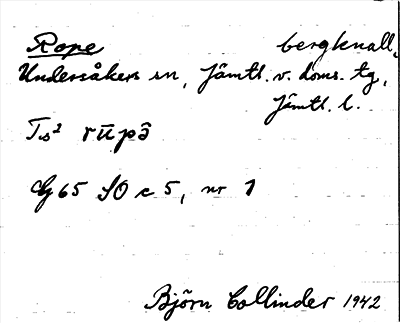 Rope bergknall,
Undersåkers sn, Jämtl. v. doms. tg,
Jämtl. l.
Ts² rūpā̂
Gj 65 SO c 5, nr 1
Björn Collinder 1942